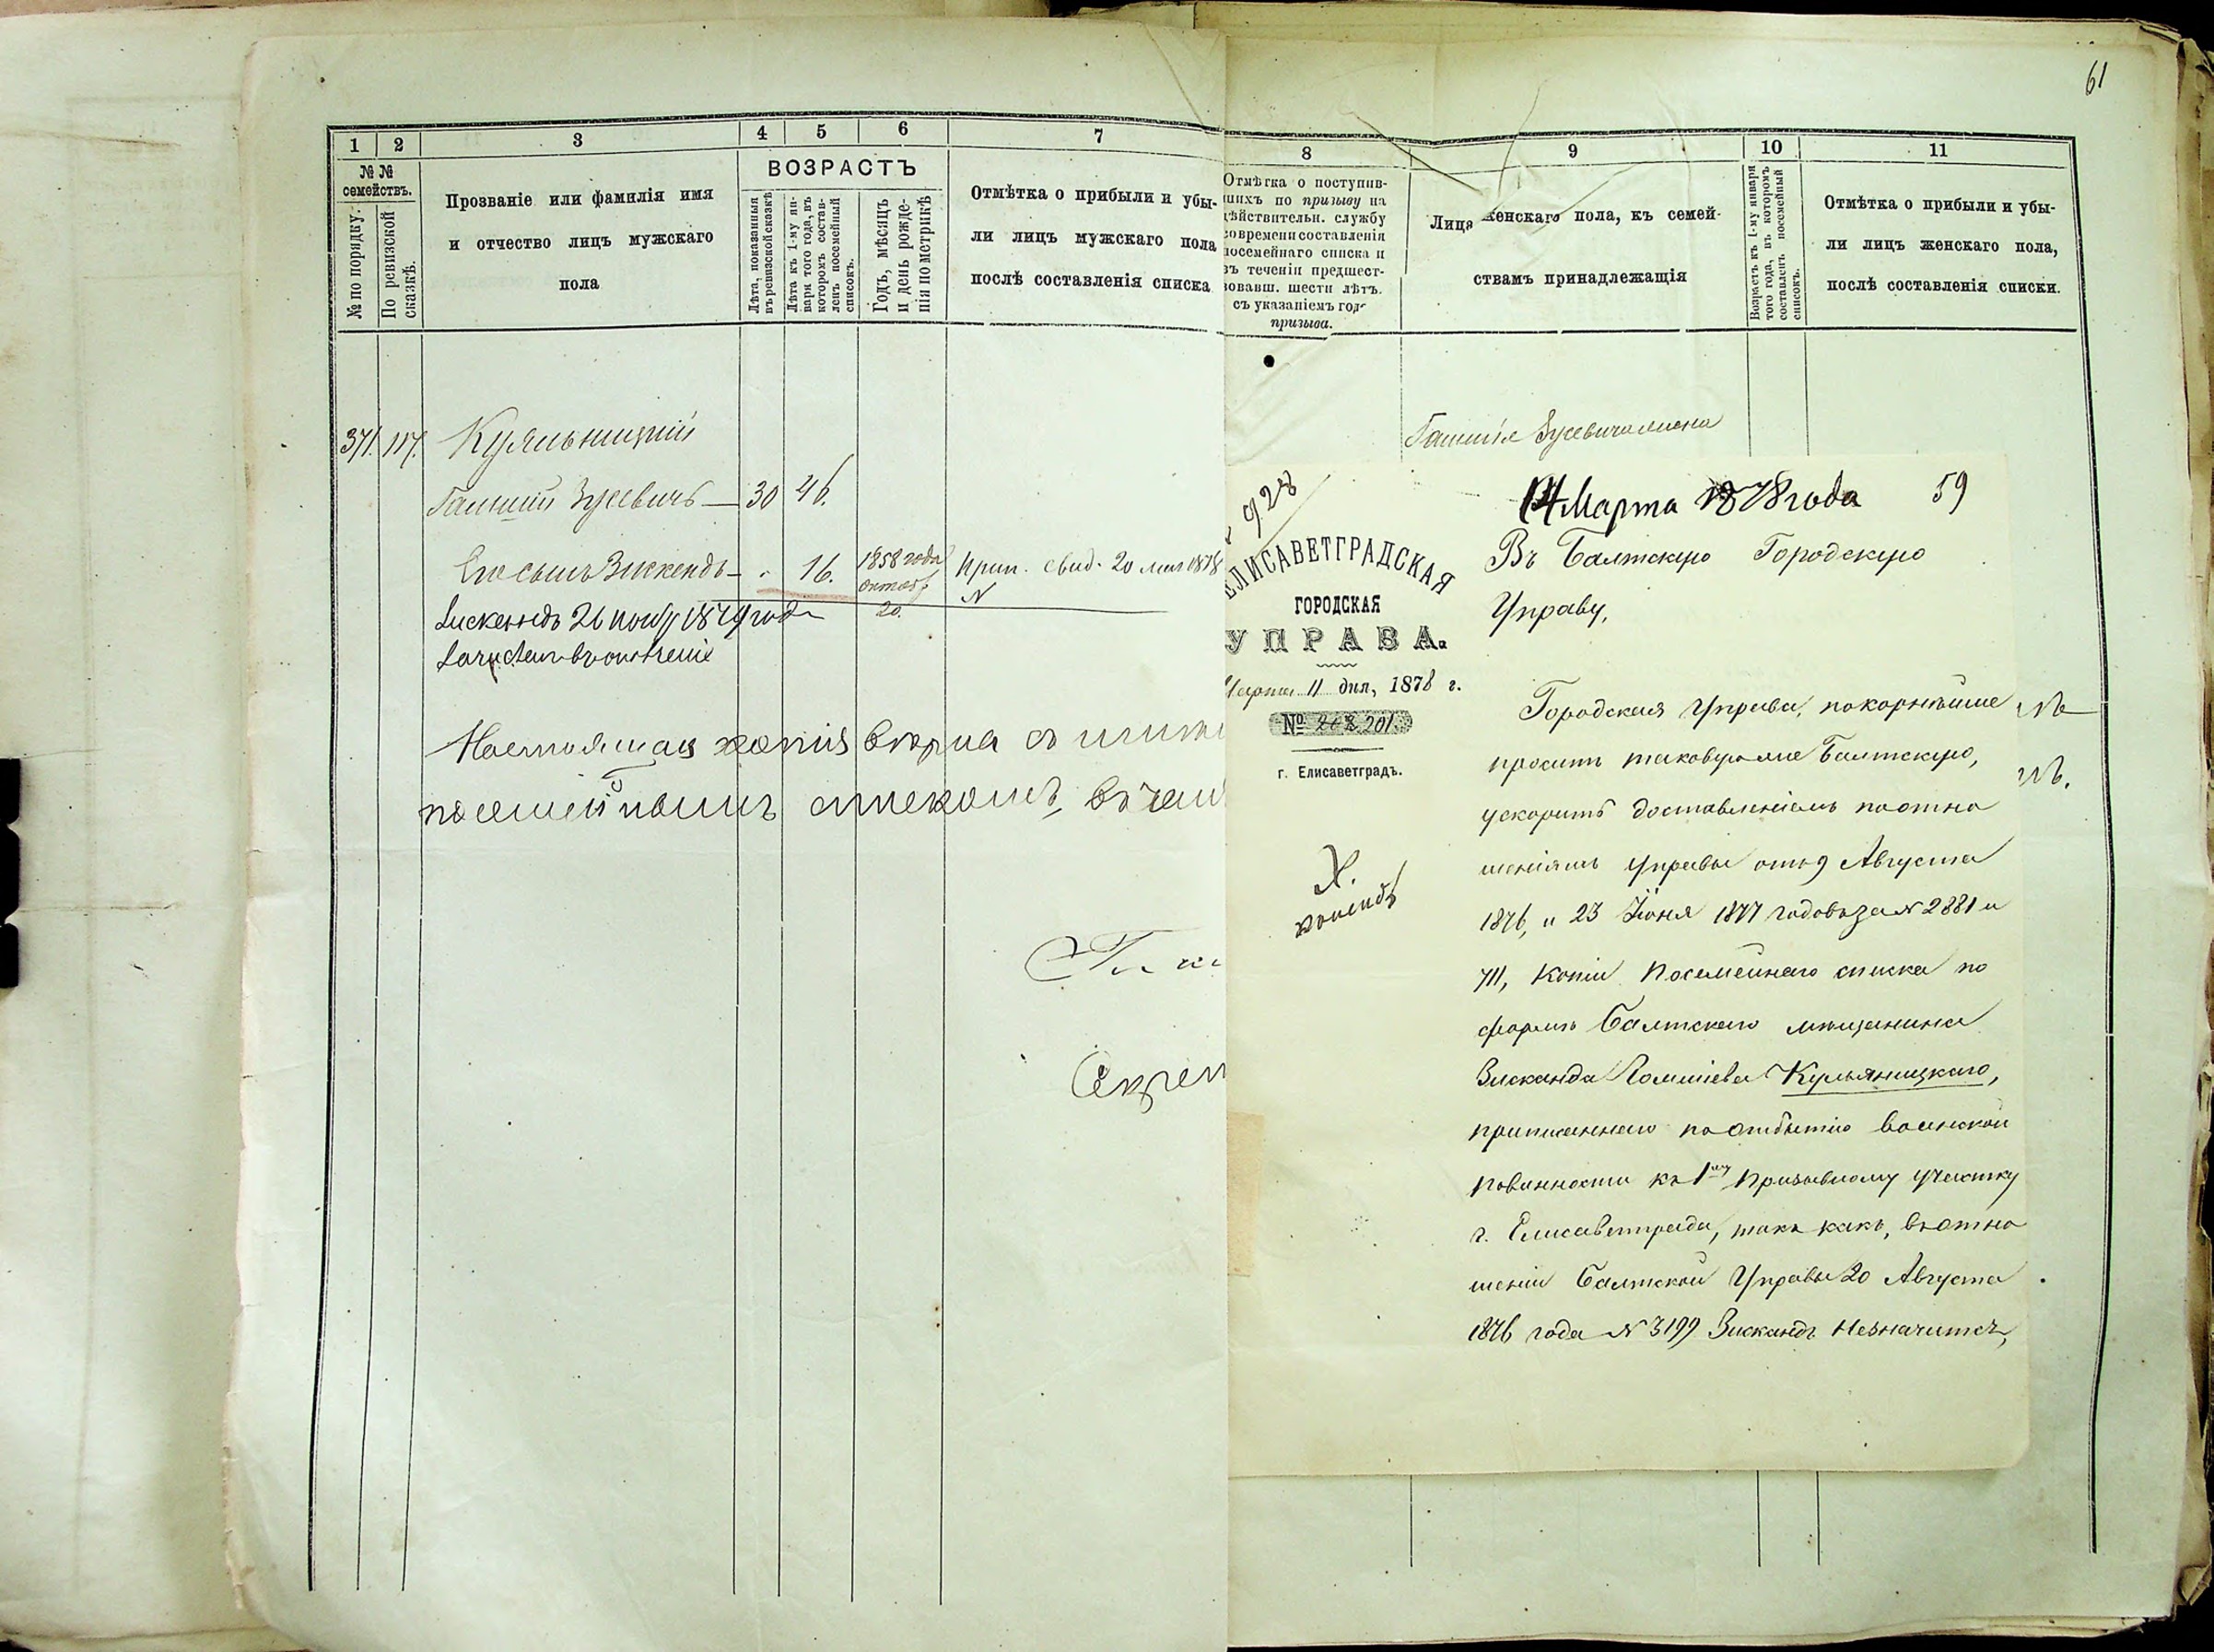 61
1
2
3
4
5
6
7
№ №
семействъ.
№ по порядку.
По ревизской
сказкѣ.
Прозваніе или фамилія имя
и отчество лицъ мужскаго
пола
ВОЗРАСТЪ
Лѣта, показанныя
въ ревизской сказкѣ
Лѣта къ 1-му ян-
варя того года, въ
которомъ состав-
ленъ посемейный
списокъ.
Годъ, мѣсяцъ
и день рожде-
нія по метрикѣ
Отмѣтка о прибыли и убы-
ли лицъ мужскаго пола
послѣ составленія списка
371. 117. Куяльницкій
Гамшій Зусевичъ — 30 46.
Его сынъ Зискендъ — " 16. 1858 года Прип. свид. 20 1878
октяб. №
20.
Зискендъ 26 1879 года
Настоящая копія вѣрна съ
посемейнымъ спискомъ, въ чемъ
Секрет
8
9
10
11
Отмѣтка о поступив-
шихъ по призыву на
дѣйствительн. службу
современи составленія
посемейнаго списка и
въ теченіи предшест-
вовавш. шести лѣтъ.
съ указаніемъ год
призыва.
Лица женскаго пола, къ семей-
ствамъ принадлежащія
Возрастъ къ 1-му января
того года, въ которомъ
составленъ посемейный
списокъ.
Отмѣтка о прибыли и убы-
ли лицъ женскаго пола,
послѣ составленія списки.
Гамшія Зусевича жена
928
ЕЛИСАВЕТГРАДСКАЯ
ГОРОДСКАЯ
УПРАВА.
Марта 11 дня, 1878 г.
№ 201.
г. Елисаветградъ.
14 Марта 1878 года 59
Въ Балтскую Городскую
Управу,
Городская Управа, покорнѣйше
проситъ таковую же Балтскую,
ускорить доставленіемъ по отно
шеніямъ Управы отъ 9 Августа
1876, и 23 Іюня 1877 годовъ за № 2881 и
711, копіи посемейнаго списка по
формѣ Балтскаго мѣщанина
Зисканда Гомшіева Кульяницкаго,
приписаннаго по отбытію воинской
повинности къ 1му призывному участку
г. Елисаветграда, такъ какъ, въ отно
шеніи Балтской Управы 20 Августа
1876 года № 3199 Зискандъ незначится,